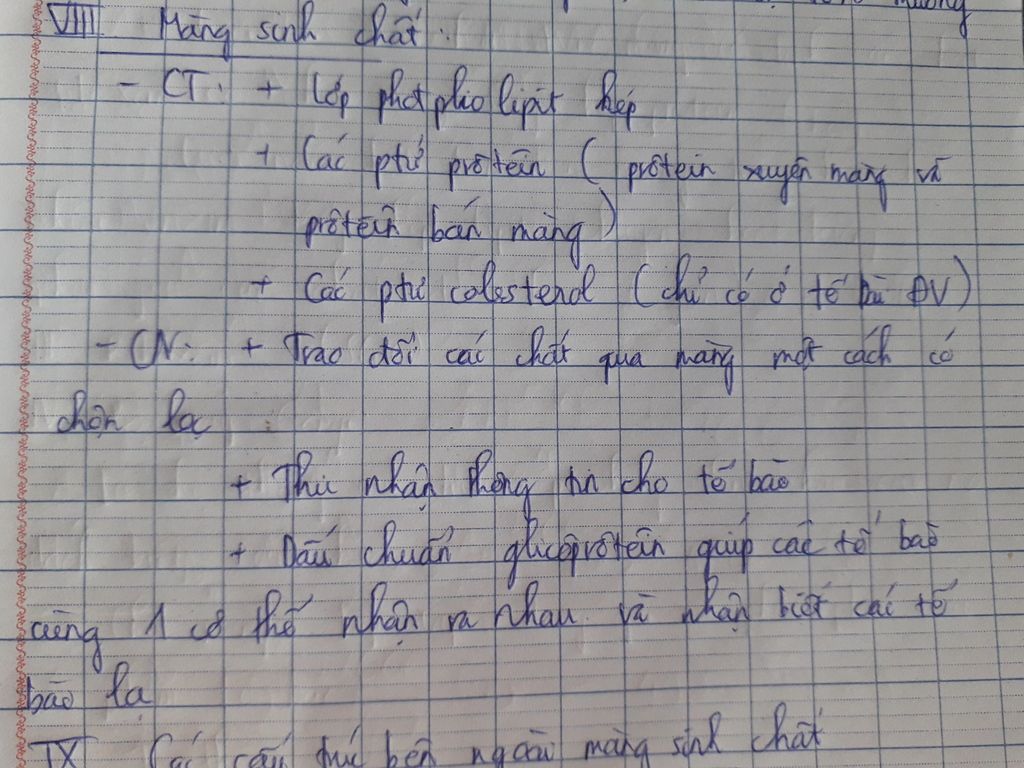 VIII Màng sinh chất:
- CT: + Lớp photpholipit kép
+ Các ptử prôtêin (prôtêin xuyên màng và
prôtêin bán màng)
+ Các ptử colesterol (chỉ có ở tế bào ĐV)
- CN: + Trao đổi các chất qua màng một cách có
chọn lọc
+ Thu nhận thông tin cho tế bào
+ Dấu chuẩn glicôprôtêin giúp các tế bào
cùng 1 cơ thể nhận ra nhau và nhận biết các tế
bào lạ
IX Các cấu trúc bên ngoài màng sinh chất